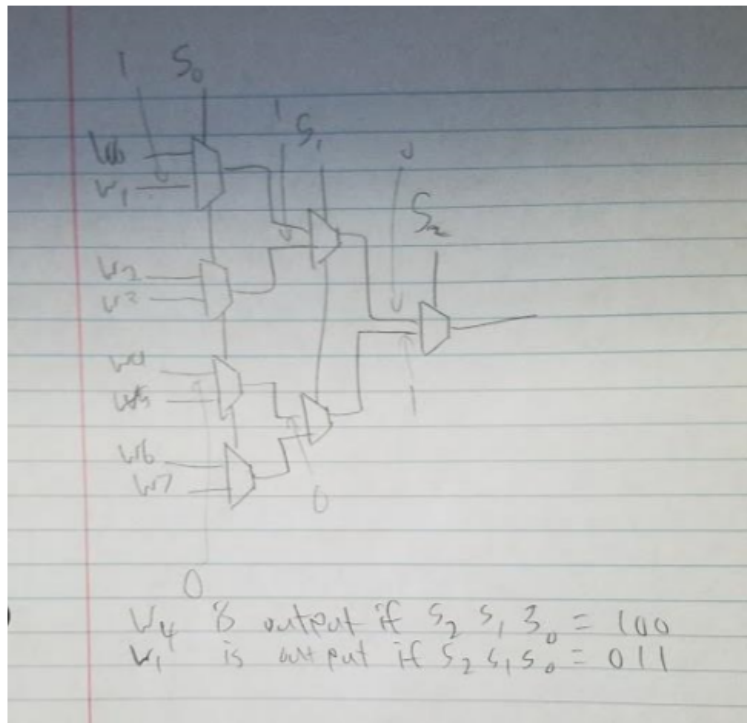 1 S0
1 S1
S2
W0
W1
W2
W3
W4
W5
W6
W7
1
0
0
W4 is output if S2 S1 S0 = 100
W1 is output if S2 S1 S0 = 011